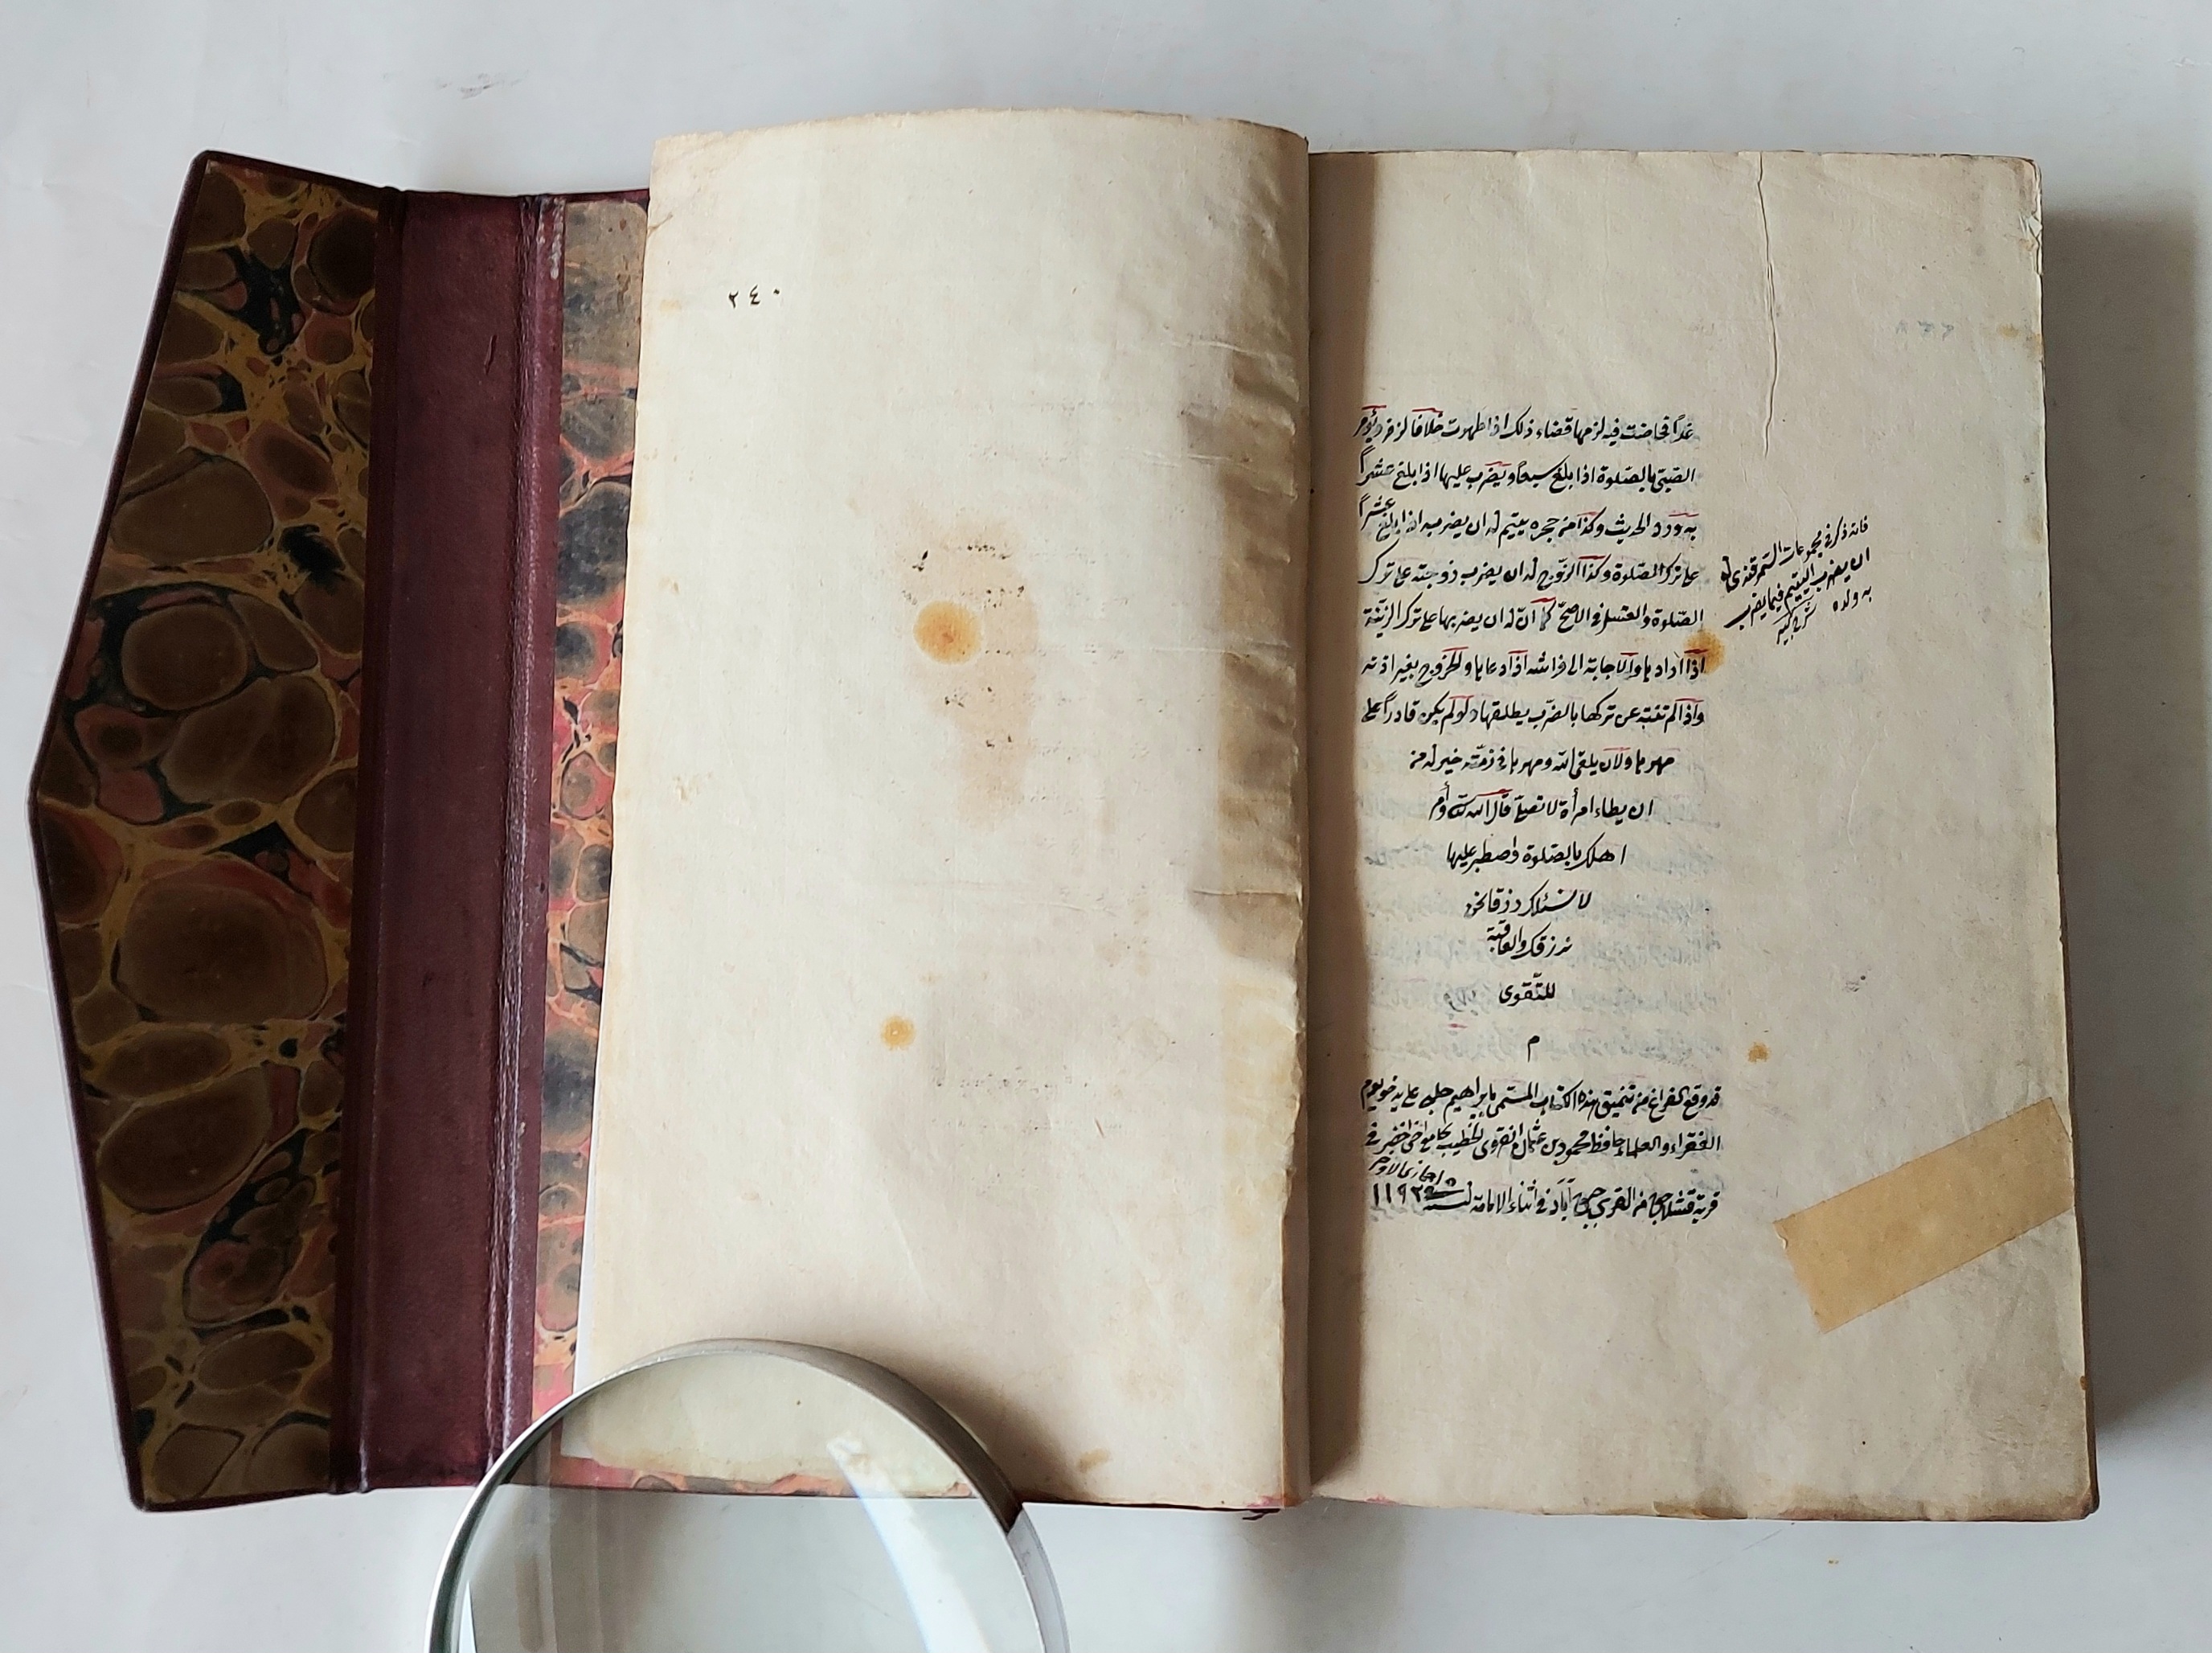 غداً فحاضت فيه لزمها قضاء ذلك اذا طهرت خلافا لزفر ويؤمر
الصبى بالصلوة اذا بلغ سبعاً ويضرب عليها اذا بلغ عشراً
به ورد الحديث وكذا من حجره يتيم له ان يضربه اذا بلغ عشراً
على ترك الصلوة وكذا الزوج له ان يضرب زوجته على ترك
الصلوة والغسل فى الاصح كما انّ له ان يضربها على ترك الزينة
اذا ارادها والاجابة الى فراشه اذا دعاها والخروج بغير اذنه
واذا لم تنته عن تركها بالضرب يطلقها ولو لم يكن قادراً على
مهرها ولان يلقى الله ومهرها فى ذمته خير له من
ان يطاء امرأة لا تصلى قال الله وأمر
اهلك بالصلوة واصطبر عليها
لا نسئلك رزقا نحن
نرزقك والعاقبة
للتقوى
م
قد وقع الفراغ من تنميق هذه الكتاب المسمى بابراهيم حلبى على يد
الفقراء والعلماء حافظ محمود بن عثمان الخطيب بجامع فى
قرية من القرى فى اثناء الاقامة لسنه ١١٩٢
فانه ذكر فى مجموعات السمرقندى له
ان يضرب اليتيم فيما يضرب
به ولده
كبير
٢٤٠